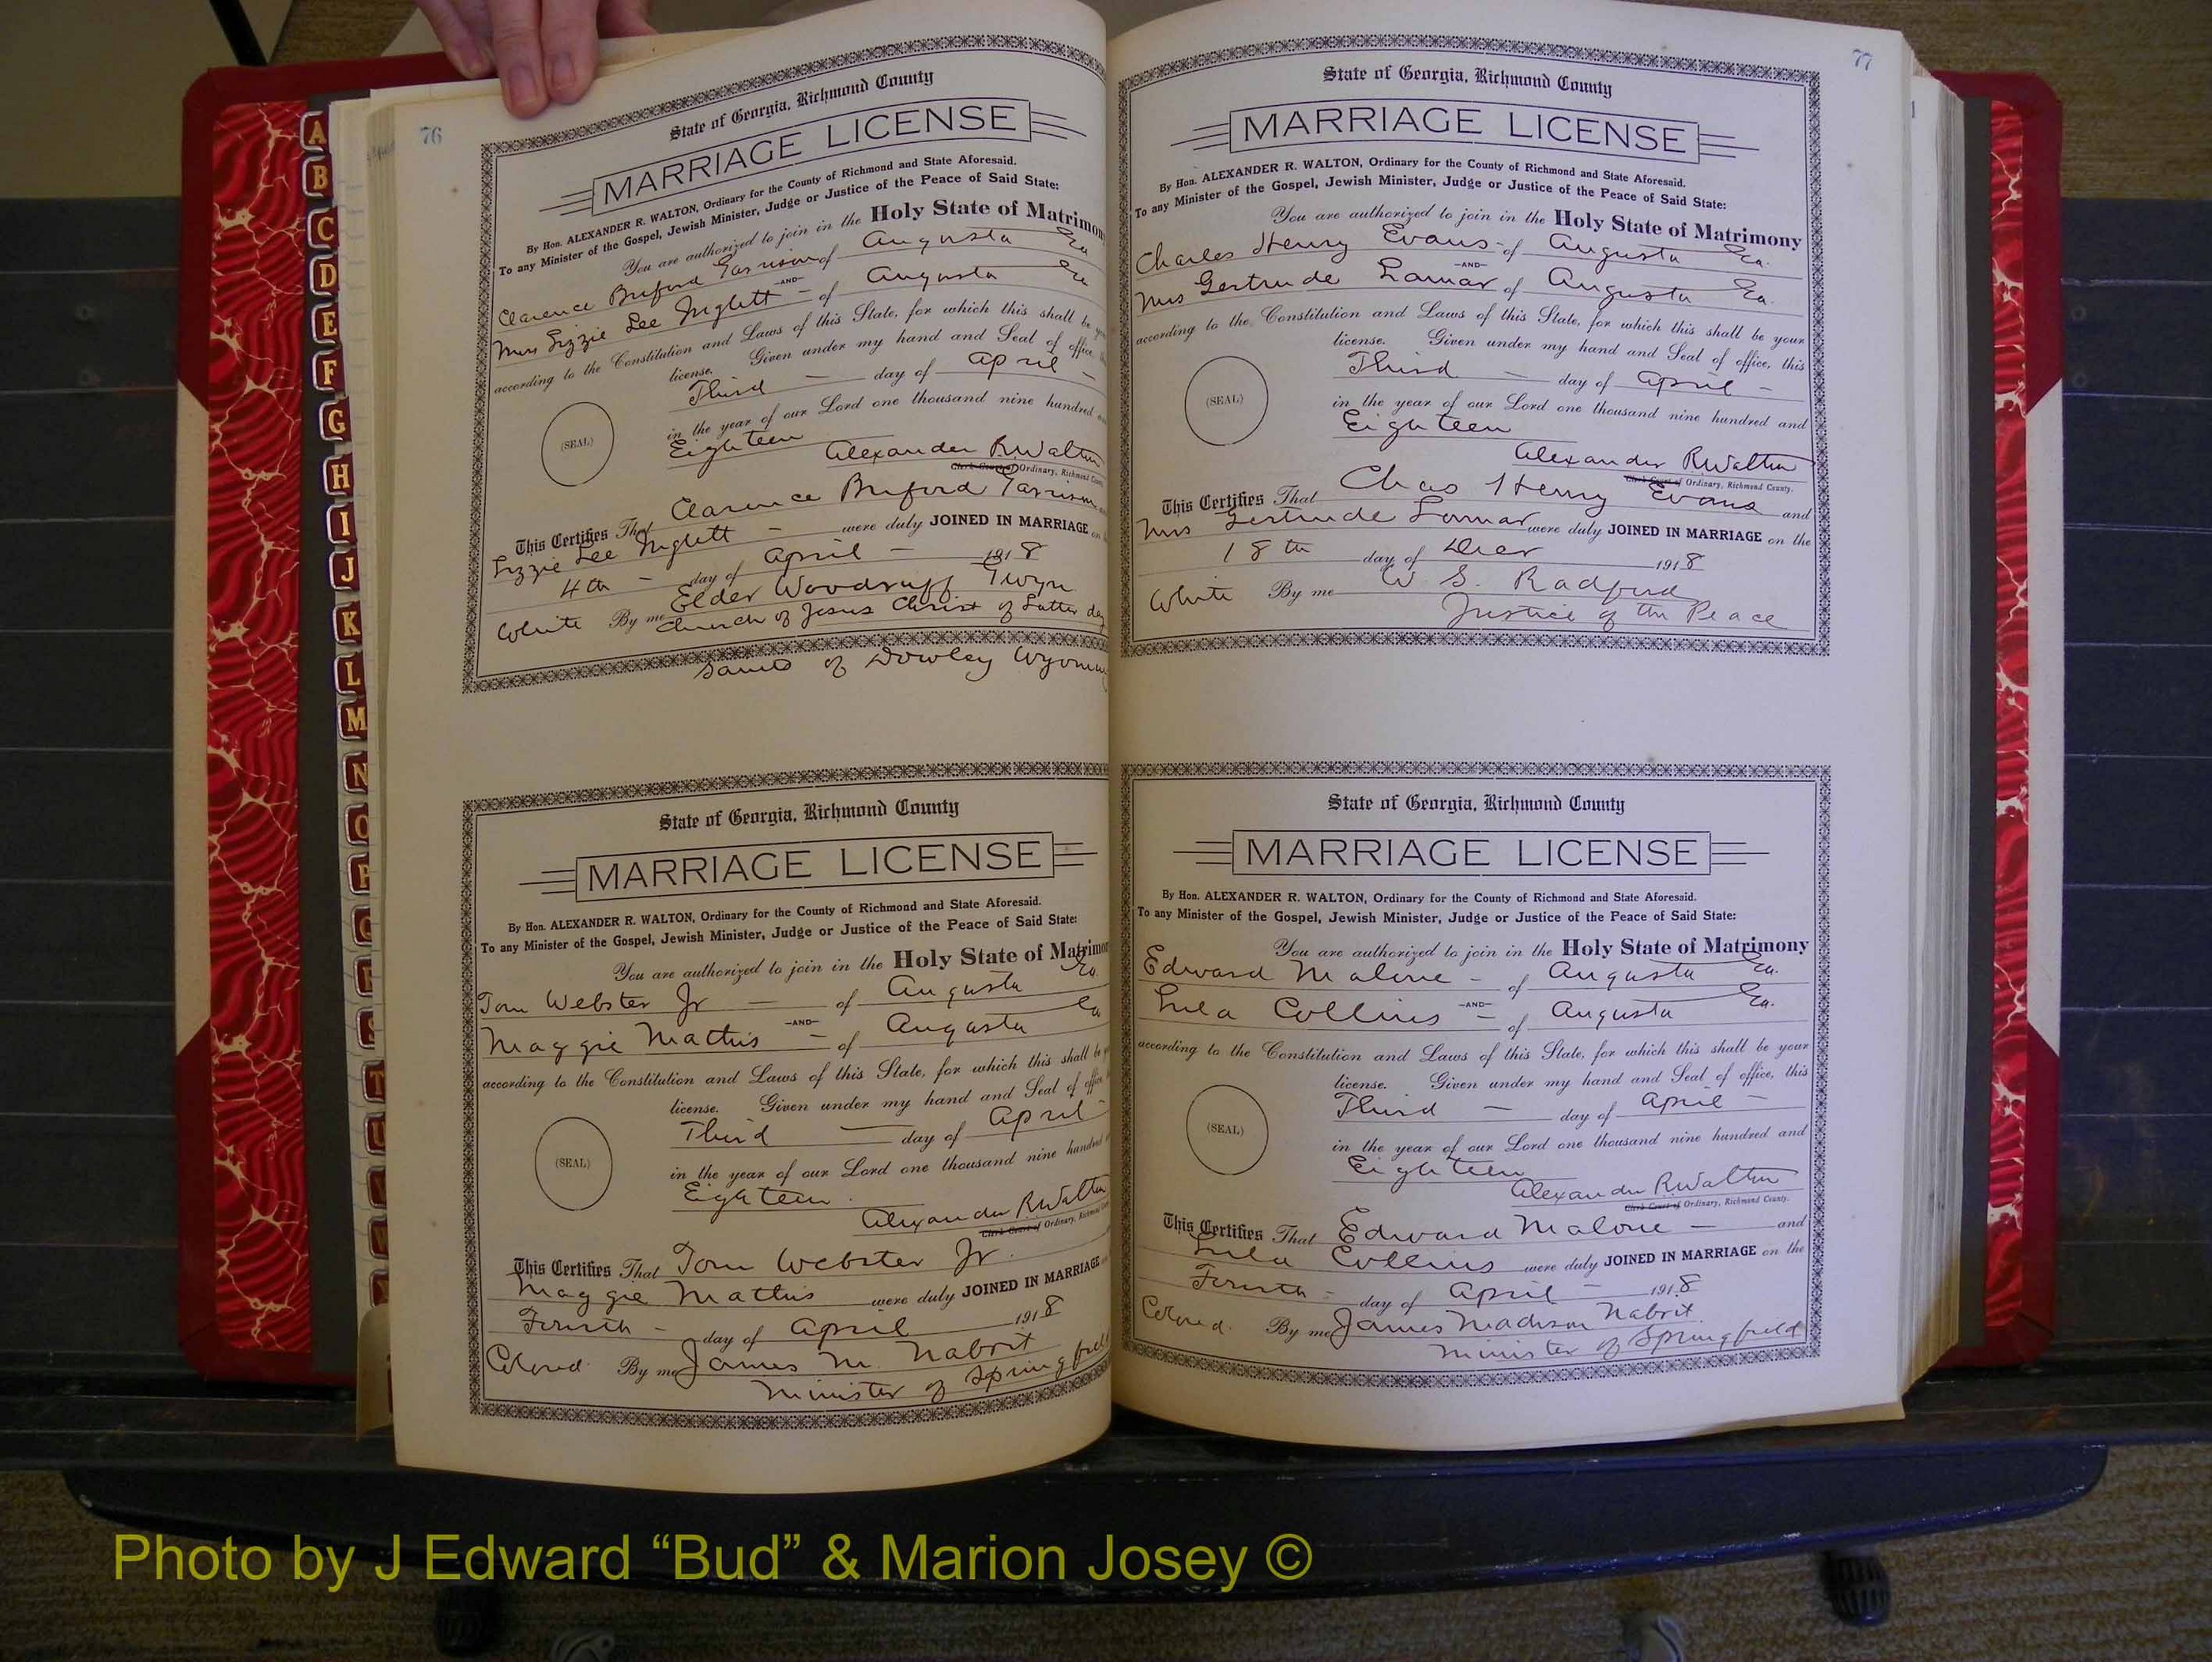 76
State of Georgia, Richmond County
MARRIAGE LICENSE
By Hon. ALEXANDER R. WALTON, Ordinary for the County of Richmond and State Aforesaid.
To any Minister of the Gospel, Jewish Minister, Judge or Justice of the Peace of Said State:
You are authorized to join in the Holy State of Matrimony
Clarence Buford Garrison of Augusta Ga
—AND—
Miss Lizzie Lee Inglett – of Augusta Ga
according to the Constitution and Laws of this State, for which this shall be
license. Given under my hand and Seal of office,
Third — day of April –
in the year of our Lord one thousand nine hundred
Eighteen
(SEAL)
Alexander R Walton
Clerk Court of Ordinary, Richmond County
This Certifies That Clarence Buford Garrison
Lizzie Lee Inglett – were duly JOINED IN MARRIAGE on
4th – day of April – 1918
White By me Elder Woodruff
Church of Jesus Christ of Latter day
Saints of Wyoming
State of Georgia, Richmond County
MARRIAGE LICENSE
By Hon. ALEXANDER R. WALTON, Ordinary for the County of Richmond and State Aforesaid.
To any Minister of the Gospel, Jewish Minister, Judge or Justice of the Peace of Said State:
You are authorized to join in the Holy State of Matrimon
Tom Webster Jr — of Augusta Ga.
—AND—
Maggie Mathis – of Augusta Ga
according to the Constitution and Laws of this State, for which this shall be
license. Given under my hand and Seal of office
Third — day of April –
in the year of our Lord one thousand nine hundred
Eighteen.
(SEAL)
Alexander R Walton
Clerk Court of Ordinary, Richmond
This Certifies That Tom Webster Jr.
Maggie Mathis were duly JOINED IN MARRIAGE
Fourth – day of April 1918
Colored. By me James M. Nabrit
Minister of Springfield
77
State of Georgia, Richmond County
MARRIAGE LICENSE
By Hon. ALEXANDER R. WALTON, Ordinary for the County of Richmond and State Aforesaid.
To any Minister of the Gospel, Jewish Minister, Judge or Justice of the Peace of Said State:
You are authorized to join in the Holy State of Matrimony
Charles Henry Evans – of Augusta Ga.
—AND—
Mrs Gertrude Lamar of Augusta Ga.
according to the Constitution and Laws of this State, for which this shall be your
license. Given under my hand and Seal of office, this
Third — day of April –
in the year of our Lord one thousand nine hundred and
Eighteen
(SEAL)
Alexander R Walton
Clerk Court of Ordinary, Richmond County.
This Certifies That Chas Henry Evans and
Mrs Gertrude Lamar were duly JOINED IN MARRIAGE on the
18th day of 1918
White By me W S. Radford
Justice of the Peace
State of Georgia, Richmond County
MARRIAGE LICENSE
By Hon. ALEXANDER R. WALTON, Ordinary for the County of Richmond and State Aforesaid.
To any Minister of the Gospel, Jewish Minister, Judge or Justice of the Peace of Said State:
You are authorized to join in the Holy State of Matrimony
Edward Malone – of Augusta Ga.
—AND—
Lula Collins – of Augusta Ga.
according to the Constitution and Laws of this State, for which this shall be your
license. Given under my hand and Seal of office, this
Third — day of April –
in the year of our Lord one thousand nine hundred and
Eighteen
(SEAL)
Alexander R Walton
Clerk Court of Ordinary, Richmond County.
This Certifies That Edward Malone — and
Lula Collins were duly JOINED IN MARRIAGE on the
Fourth – day of April – 1918
Colored. By me James Madison Nabrit.
Minister of Springfield
A
B
C
D
E
F
G
H
I
J
K
L
M
N
O
P
Q
R
S
T
U
Photo by J Edward “Bud” & Marion Josey ©